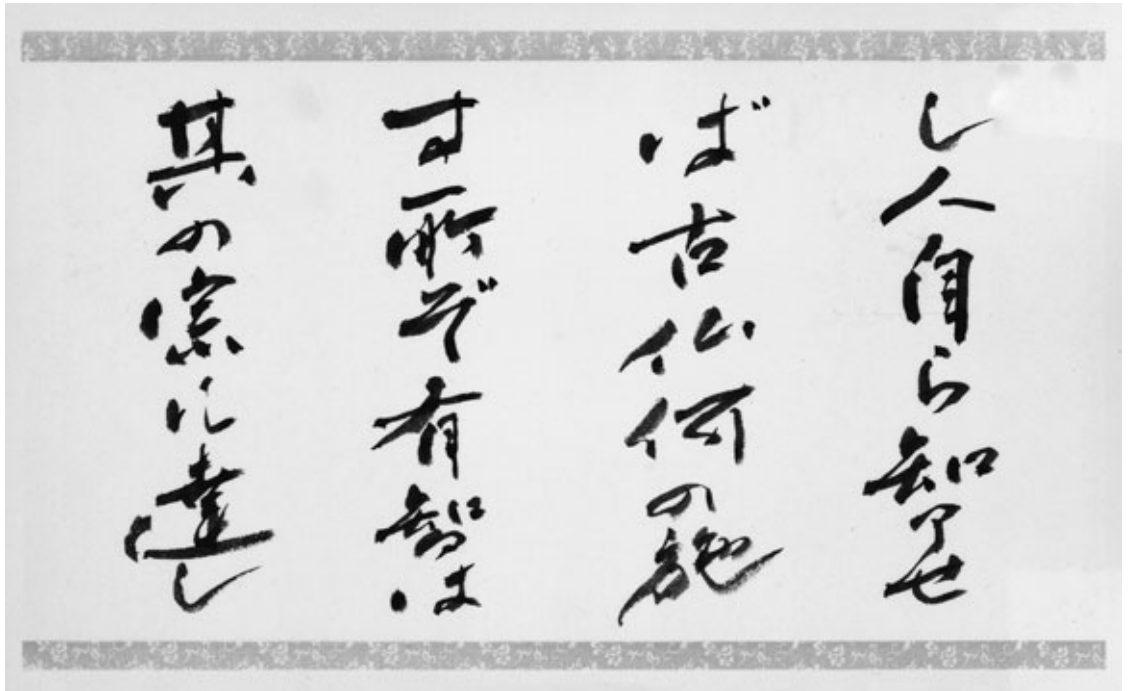 し人自ら知らせ
ば古仏何の施
す所ぞ有智は
其の宗に達し